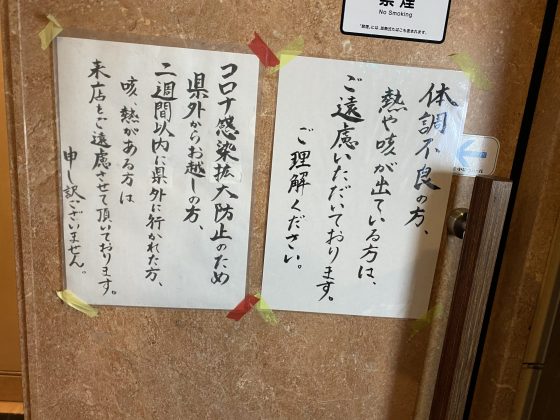 禁煙
No Smoking
体調不良の方、
熱や咳が出ている方は、
ご遠慮いただいております。
ご理解ください。
コロナ感染拡大防止のため
県外からお越しの方、
二週間以内に県外に行かれた方、
咳、熱がある方は
来店をご遠慮させて頂いております。
申し訳ございません。